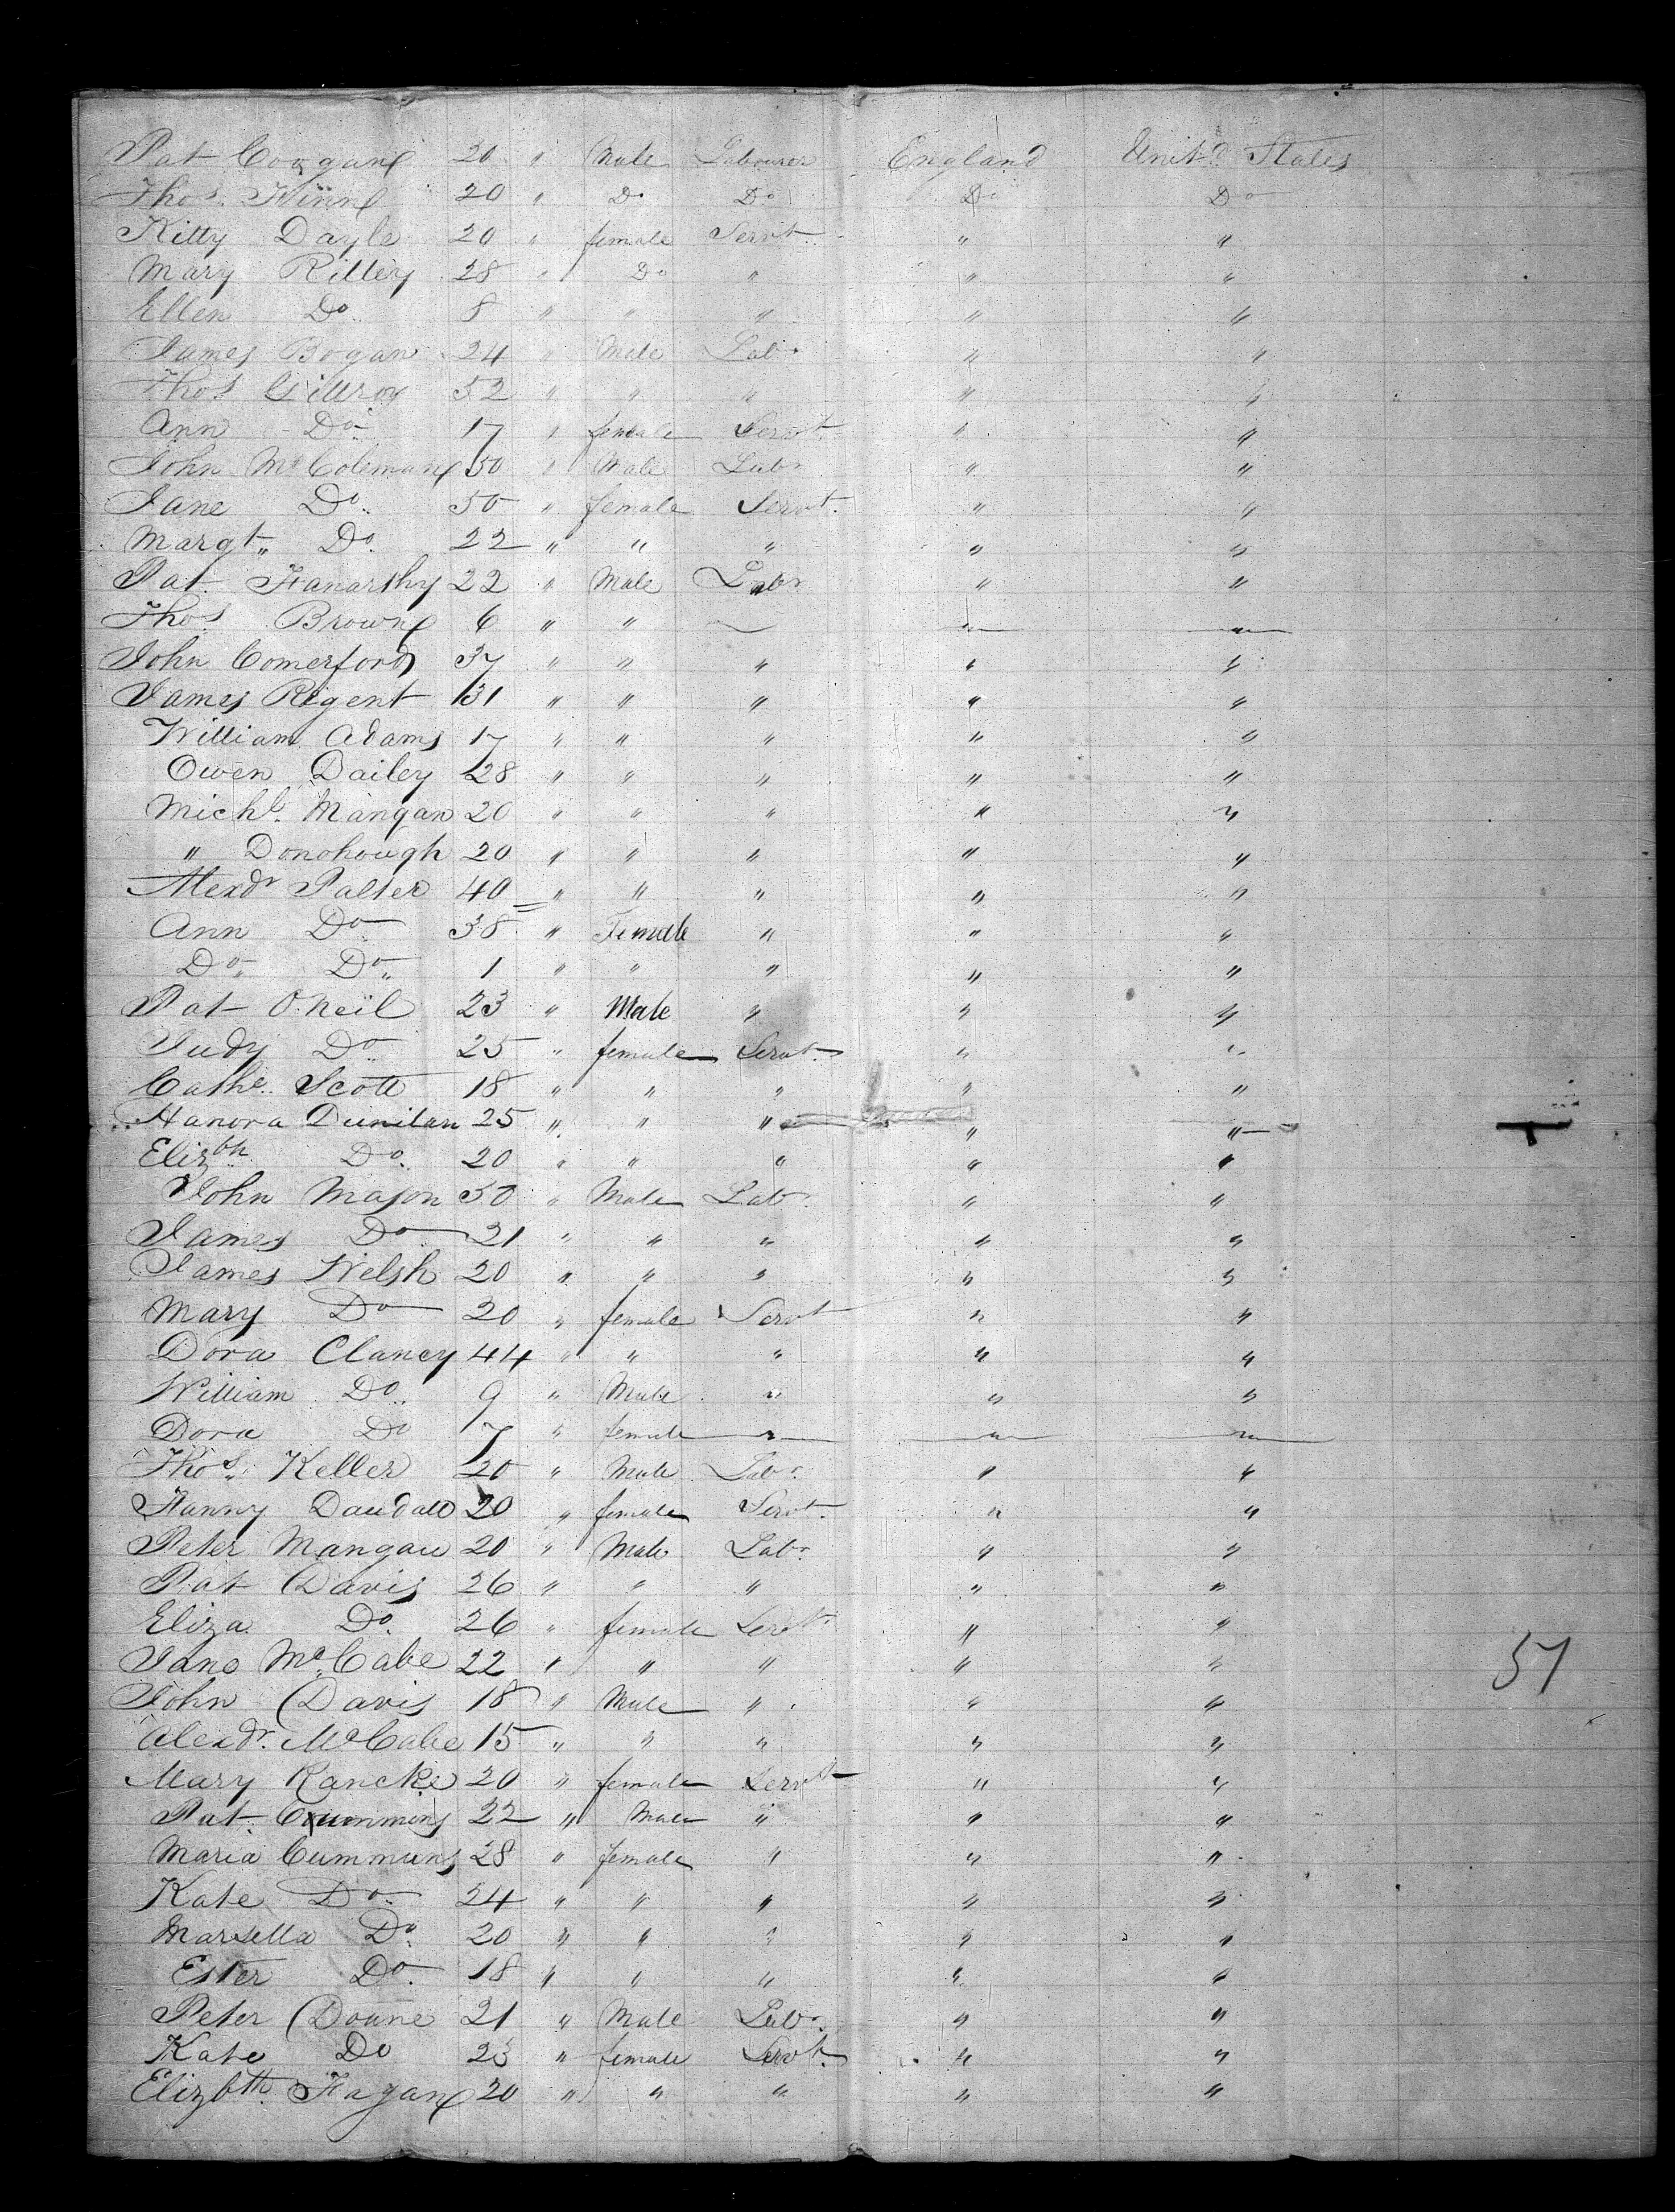 Pat Coogan 20 " Male Labourer England Unitd States
Thos. Finn 20 " Do Do Do Do
Kitty Dayle 20 " female Servt. " "
Mary Rilley 28 " Do " " "
Ellen Do. 8 " " " " "
James Bogan 24 " Male Labr " "
Thos Gillroy 52 " " " " "
Ann Do 17 " female Servt. " "
John McColeman 50 " Male Labr " "
Jane Do. 50 " female Servt. " "
Margt. Do. 22 " " " " "
Pat. Fanarthy 22 " Male Labr " "
Thos. Brown 6 " " — " "
John Comerford 37 " " " " "
James Regent 31 " " " " "
William Adams 17 " " " " "
Owen Dailey 28 " " " " "
Michl. Mangan 20 " " " " "
" Donohough 20 " " " " "
Alexdr Palter 40 " " " " "
Ann Do 38 " Female " " "
Do. Do. 1 " " " " "
Pat O.Neil 23 " Male " " "
Judy Do. 25 " female Servt. " "
Cathe. Scott 18 " " " " "
Hanora Dunilan 25 " " " " "
Elizbh. Do. 20 " " " " "
John Mason 50 " Male Labr. " "
James Do 21 " " " " "
James Welsh 20 " " " " "
Mary Do 20 " female Servt " "
Dora Clancy 44 " " " " "
William Do. 9 " Male " " "
Dora Do 7 " female " " "
Thos. Keller 20 " Male Labr. " "
Fanny Daudall 20 " female Servt. " "
Peter Mangan 20 " Male Labr. " "
Pat Davis 26 " " " " "
Eliza Do. 26 " female Servt. " "
Jane McCabe 22 " " " " "
John Davis 18 " Male " " "
Alexdr. McCabe 15 " " " " "
Mary Rancke 20 " female Servt " "
Pat. Cummins 22 " Male " " "
Maria Cummins 28 " female " " "
Kate Do 24 " " " " "
Marsella Do. 20 " " " " "
Ester Do. 18 " " " " "
Peter Doune 21 " Male Labr. " "
Kate Do 23 " female Servt. " "
Elizbth. Fagan 20 " " " " "
57